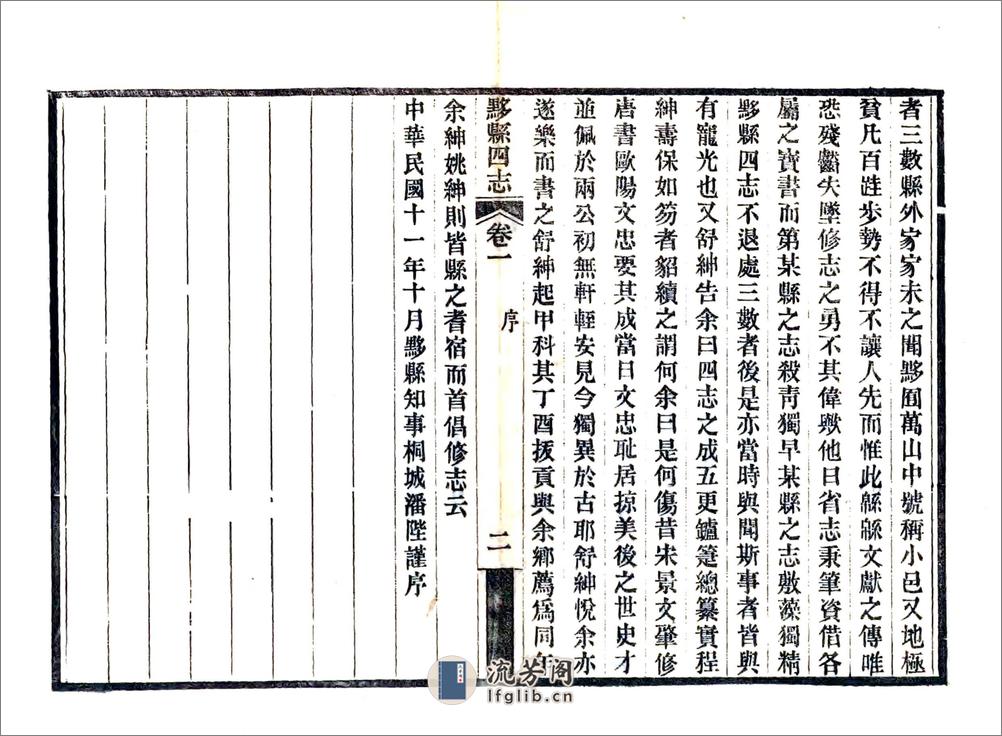 者三數縣外家家未之聞黟囿萬山中號稱小邑又地極
貧凡百跬步勢不得不讓人先而惟此緜緜文獻之傳唯
恐殘齾失墜修志之勇不其偉歟他日省志秉筆資借各
屬之寶書而第某縣之志殺靑獨早某縣之志敷藻獨精
黟縣四志不退處三數者後是亦當時與聞斯事者皆與
有寵光也又舒紳告余曰四志之成五更鑪鞴總纂實程
紳壽保如笏者貂續之謂何余曰是何傷昔宋景文肇修
唐書歐陽文忠要其成當日文忠耻居掠美後之世史才
並佩於兩公初無軒輊安見今獨異於古耶舒紳悅余亦
遂樂而書之舒紳起甲科其丁酉拔貢與余鄉薦爲同年
黟縣四志
卷一
序
二
余紳姚紳則皆縣之耆宿而首倡修志云
中華民國十一年十月黟縣知事桐城潘陛謹序
流芳阁
lfglib.cn